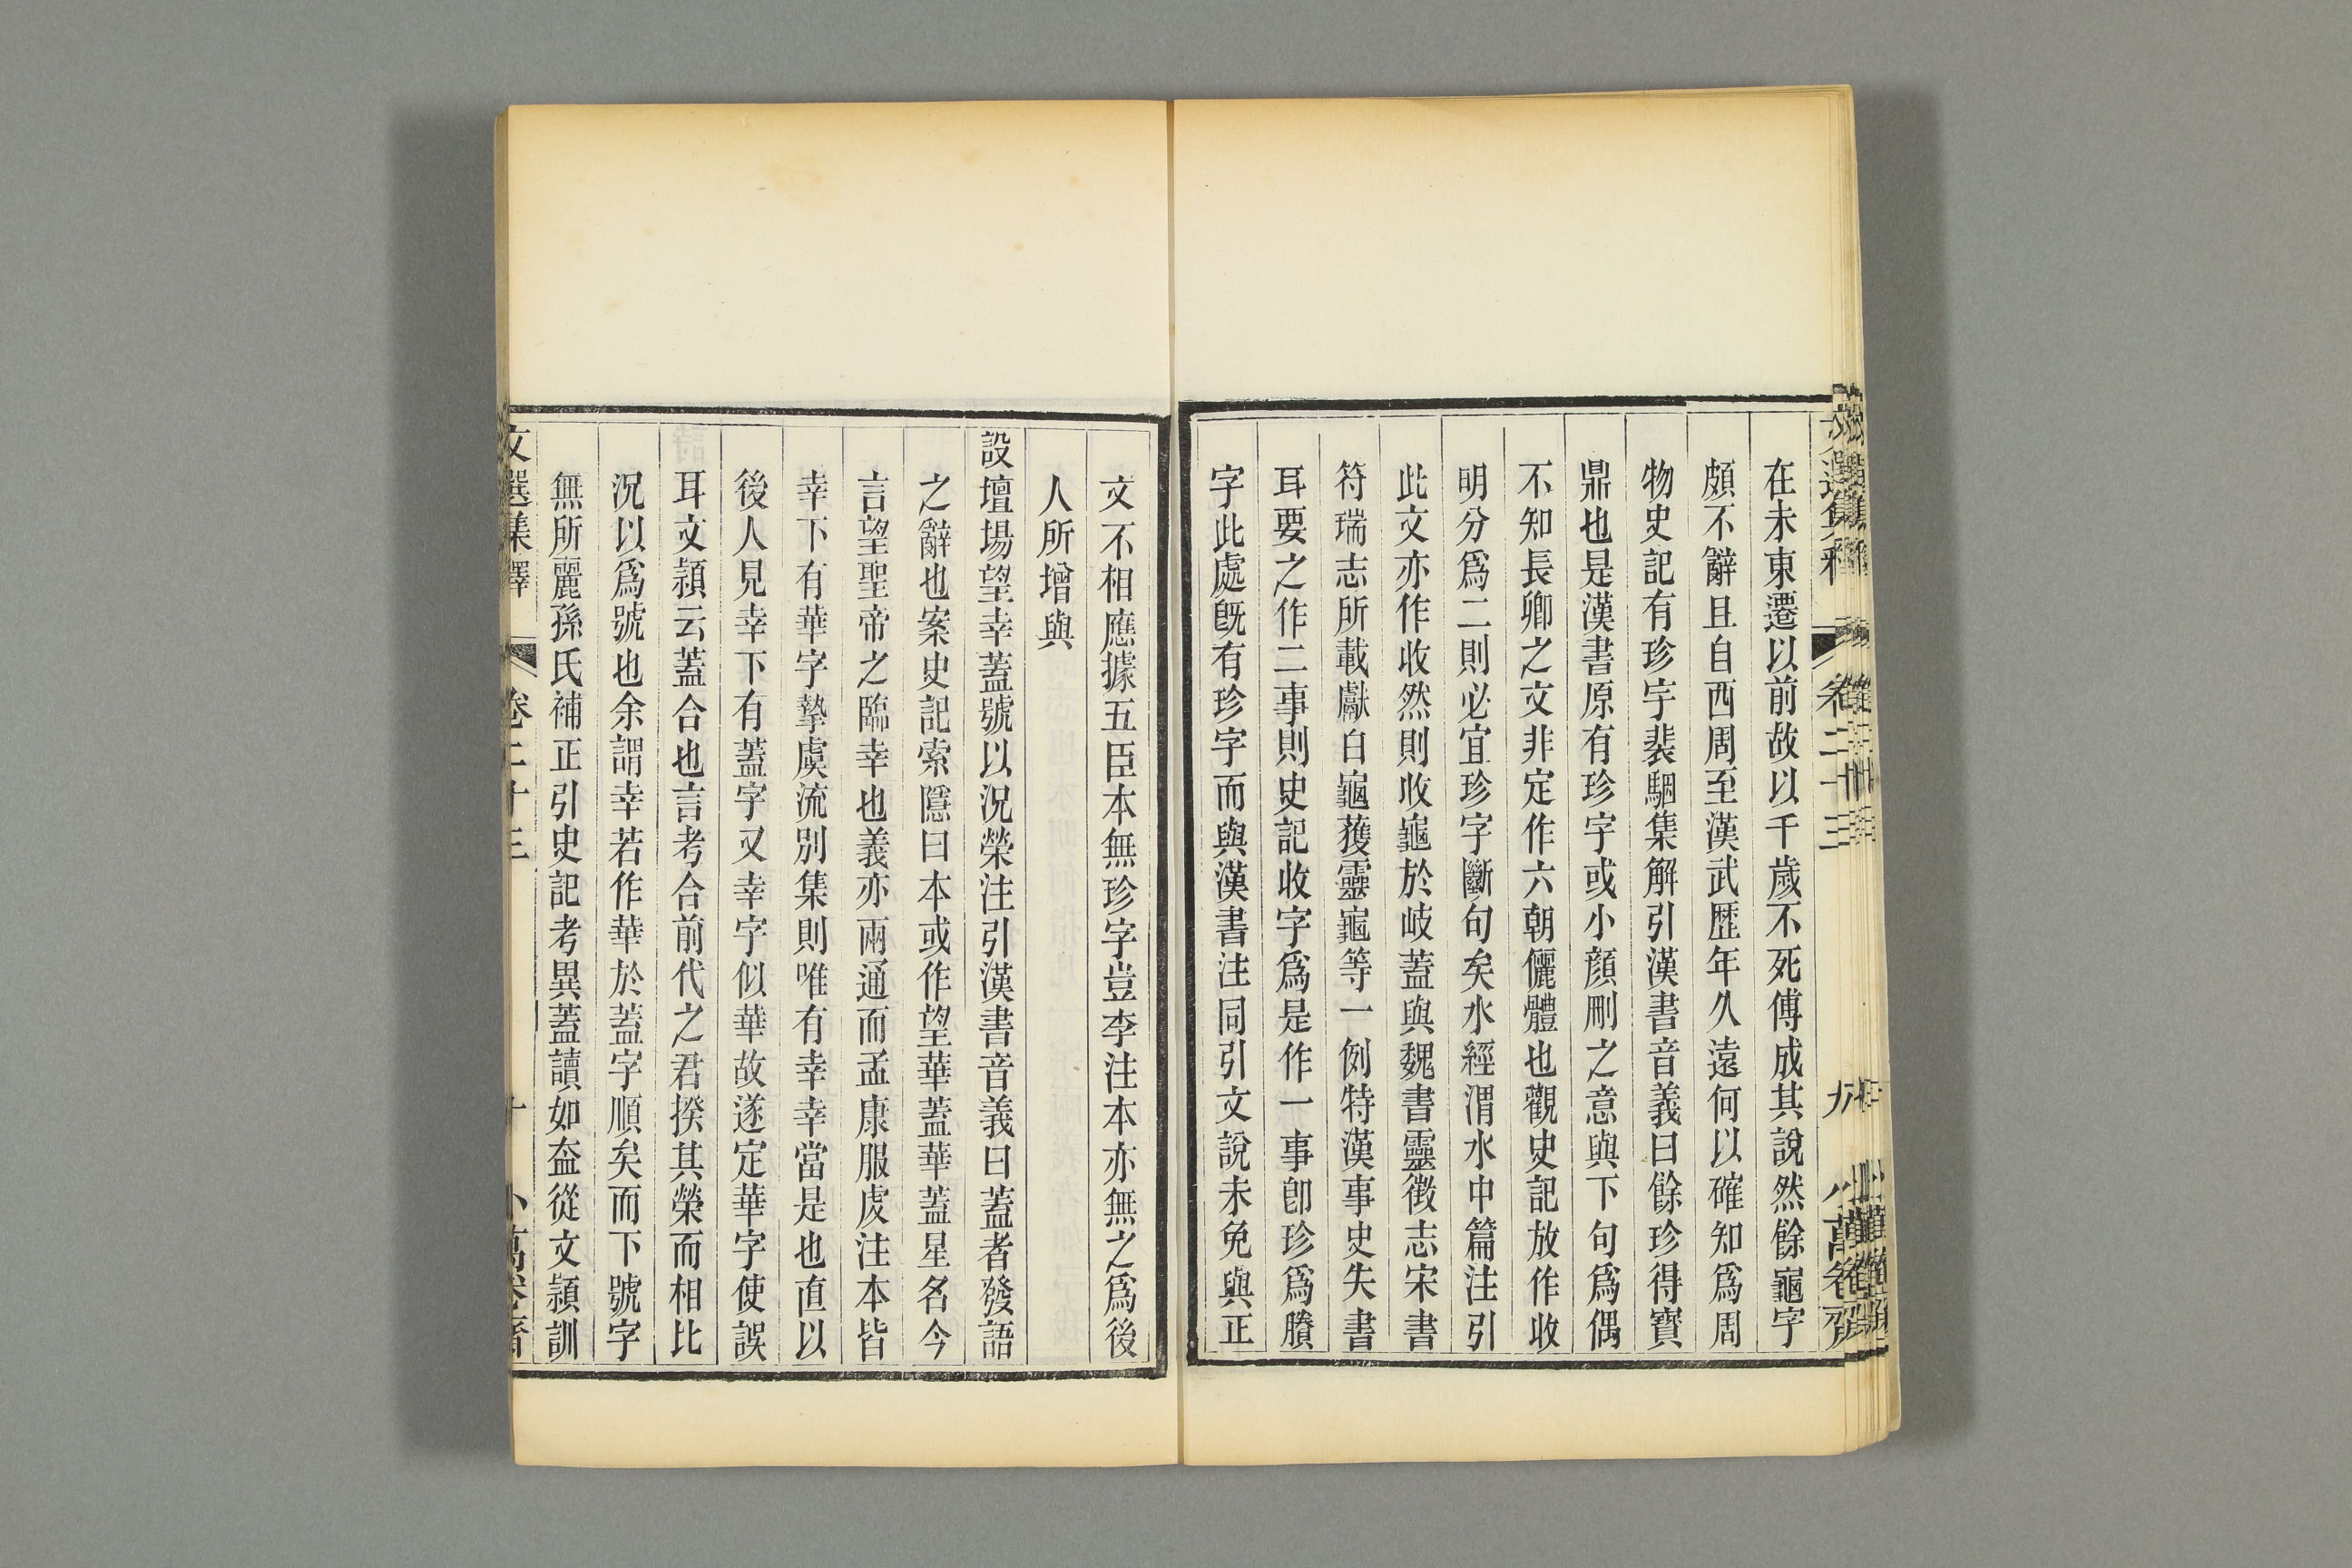 在未東遷以前故以千歲不死傅成其說然餘龜字
頗不辭且自西周至漢武歷年久遠何以確知爲周
物史記有珍字裴駰集解引漢書音義曰餘珍得寶
鼎也是漢書原有珍字或小顔刪之意與下句爲偶
不知長卿之文非定作六朝儷體也觀史記放作收
明分爲二則必宜珍字斷句矣水經渭水中篇注引
此文亦作收然則收龜於岐蓋與魏書靈徴志宋書
符瑞志所載獻白龜獲靈龜等一例特漢事史失書
耳要之作二事則史記收字爲是作一事卽珍爲賸
字此處旣有珍字而與漢書注同引文說未免與正
文不相應據五臣本無珍字豈李注本亦無之爲後
人所增與
設壇場望幸蓋號以況榮注引漢書音義曰蓋者發語
之辭也案史記索隱曰本或作望華蓋華蓋星名今
言望聖帝之臨幸也義亦兩通而孟康服虔注本皆
幸下有華字摯虞流別集則唯有幸幸當是也直以
後人見幸下有蓋字又幸字似華故遂定華字使誤
耳文穎云蓋合也言考合前代之君揆其榮而相比
況以爲號也余謂幸若作華於蓋字順矣而下號字
無所麗孫氏補正引史記考異蓋讀如盍從文穎訓
文選集釋 卷二十三 十 小萬卷齋